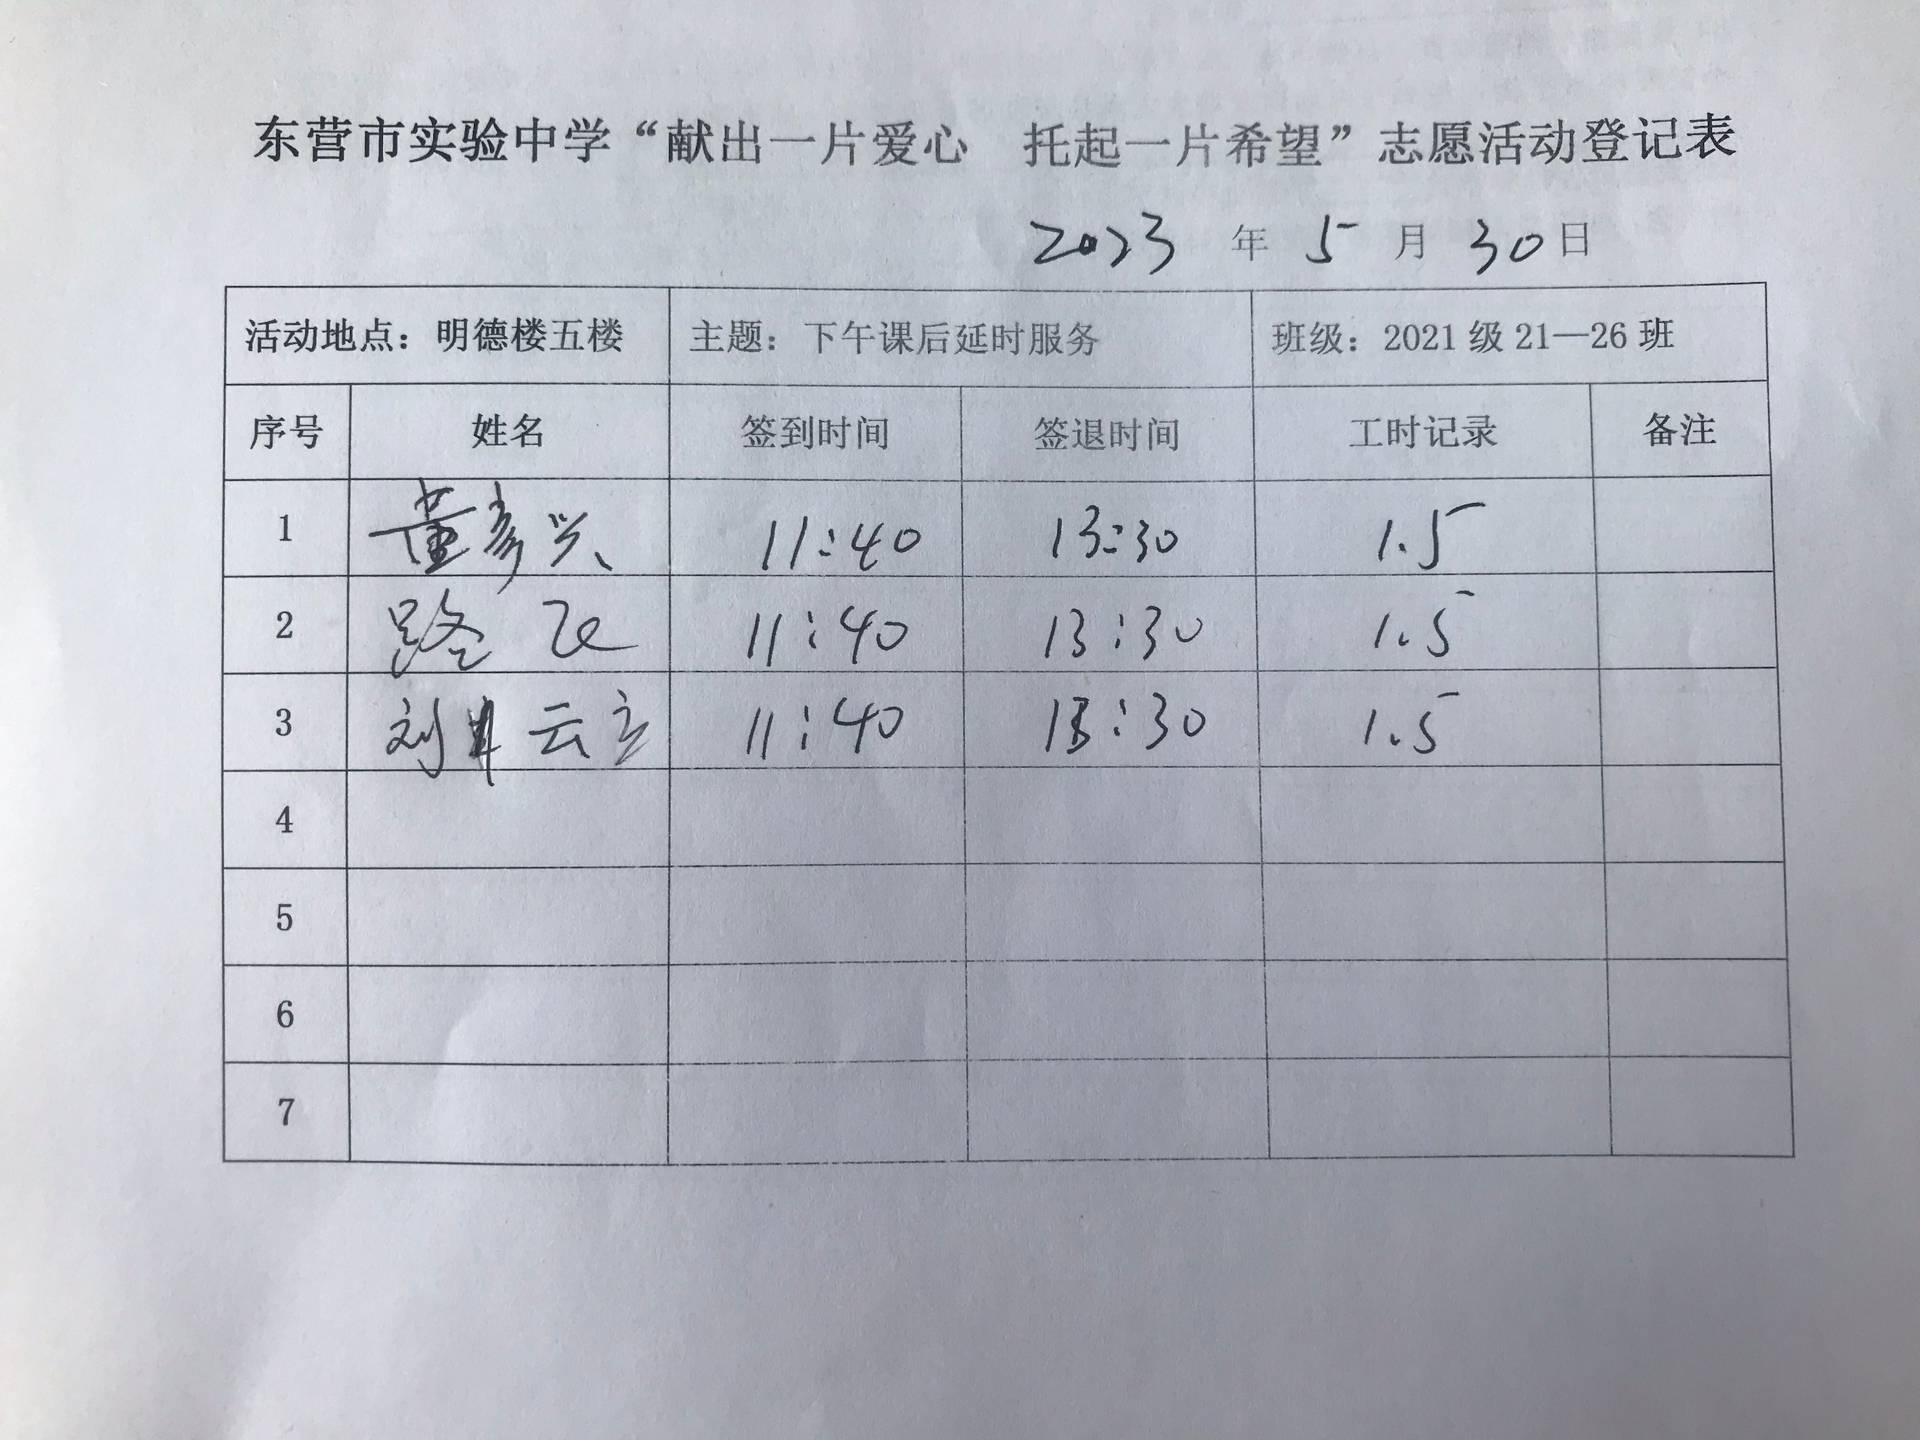 东营市实验中学“献出一片爱心 托起一片希望”志愿活动登记表
2023 年 5 月 30 日
活动地点：明德楼五楼 主题：下午课后延时服务 班级：2021 级 21—26 班
序号 姓名 签到时间 签退时间 工时记录 备注
1 董彦兴 11:40 13:30 1.5
2 路飞 11:40 13:30 1.5
3 刘云 11:40 13:30 1.5
4
5
6
7